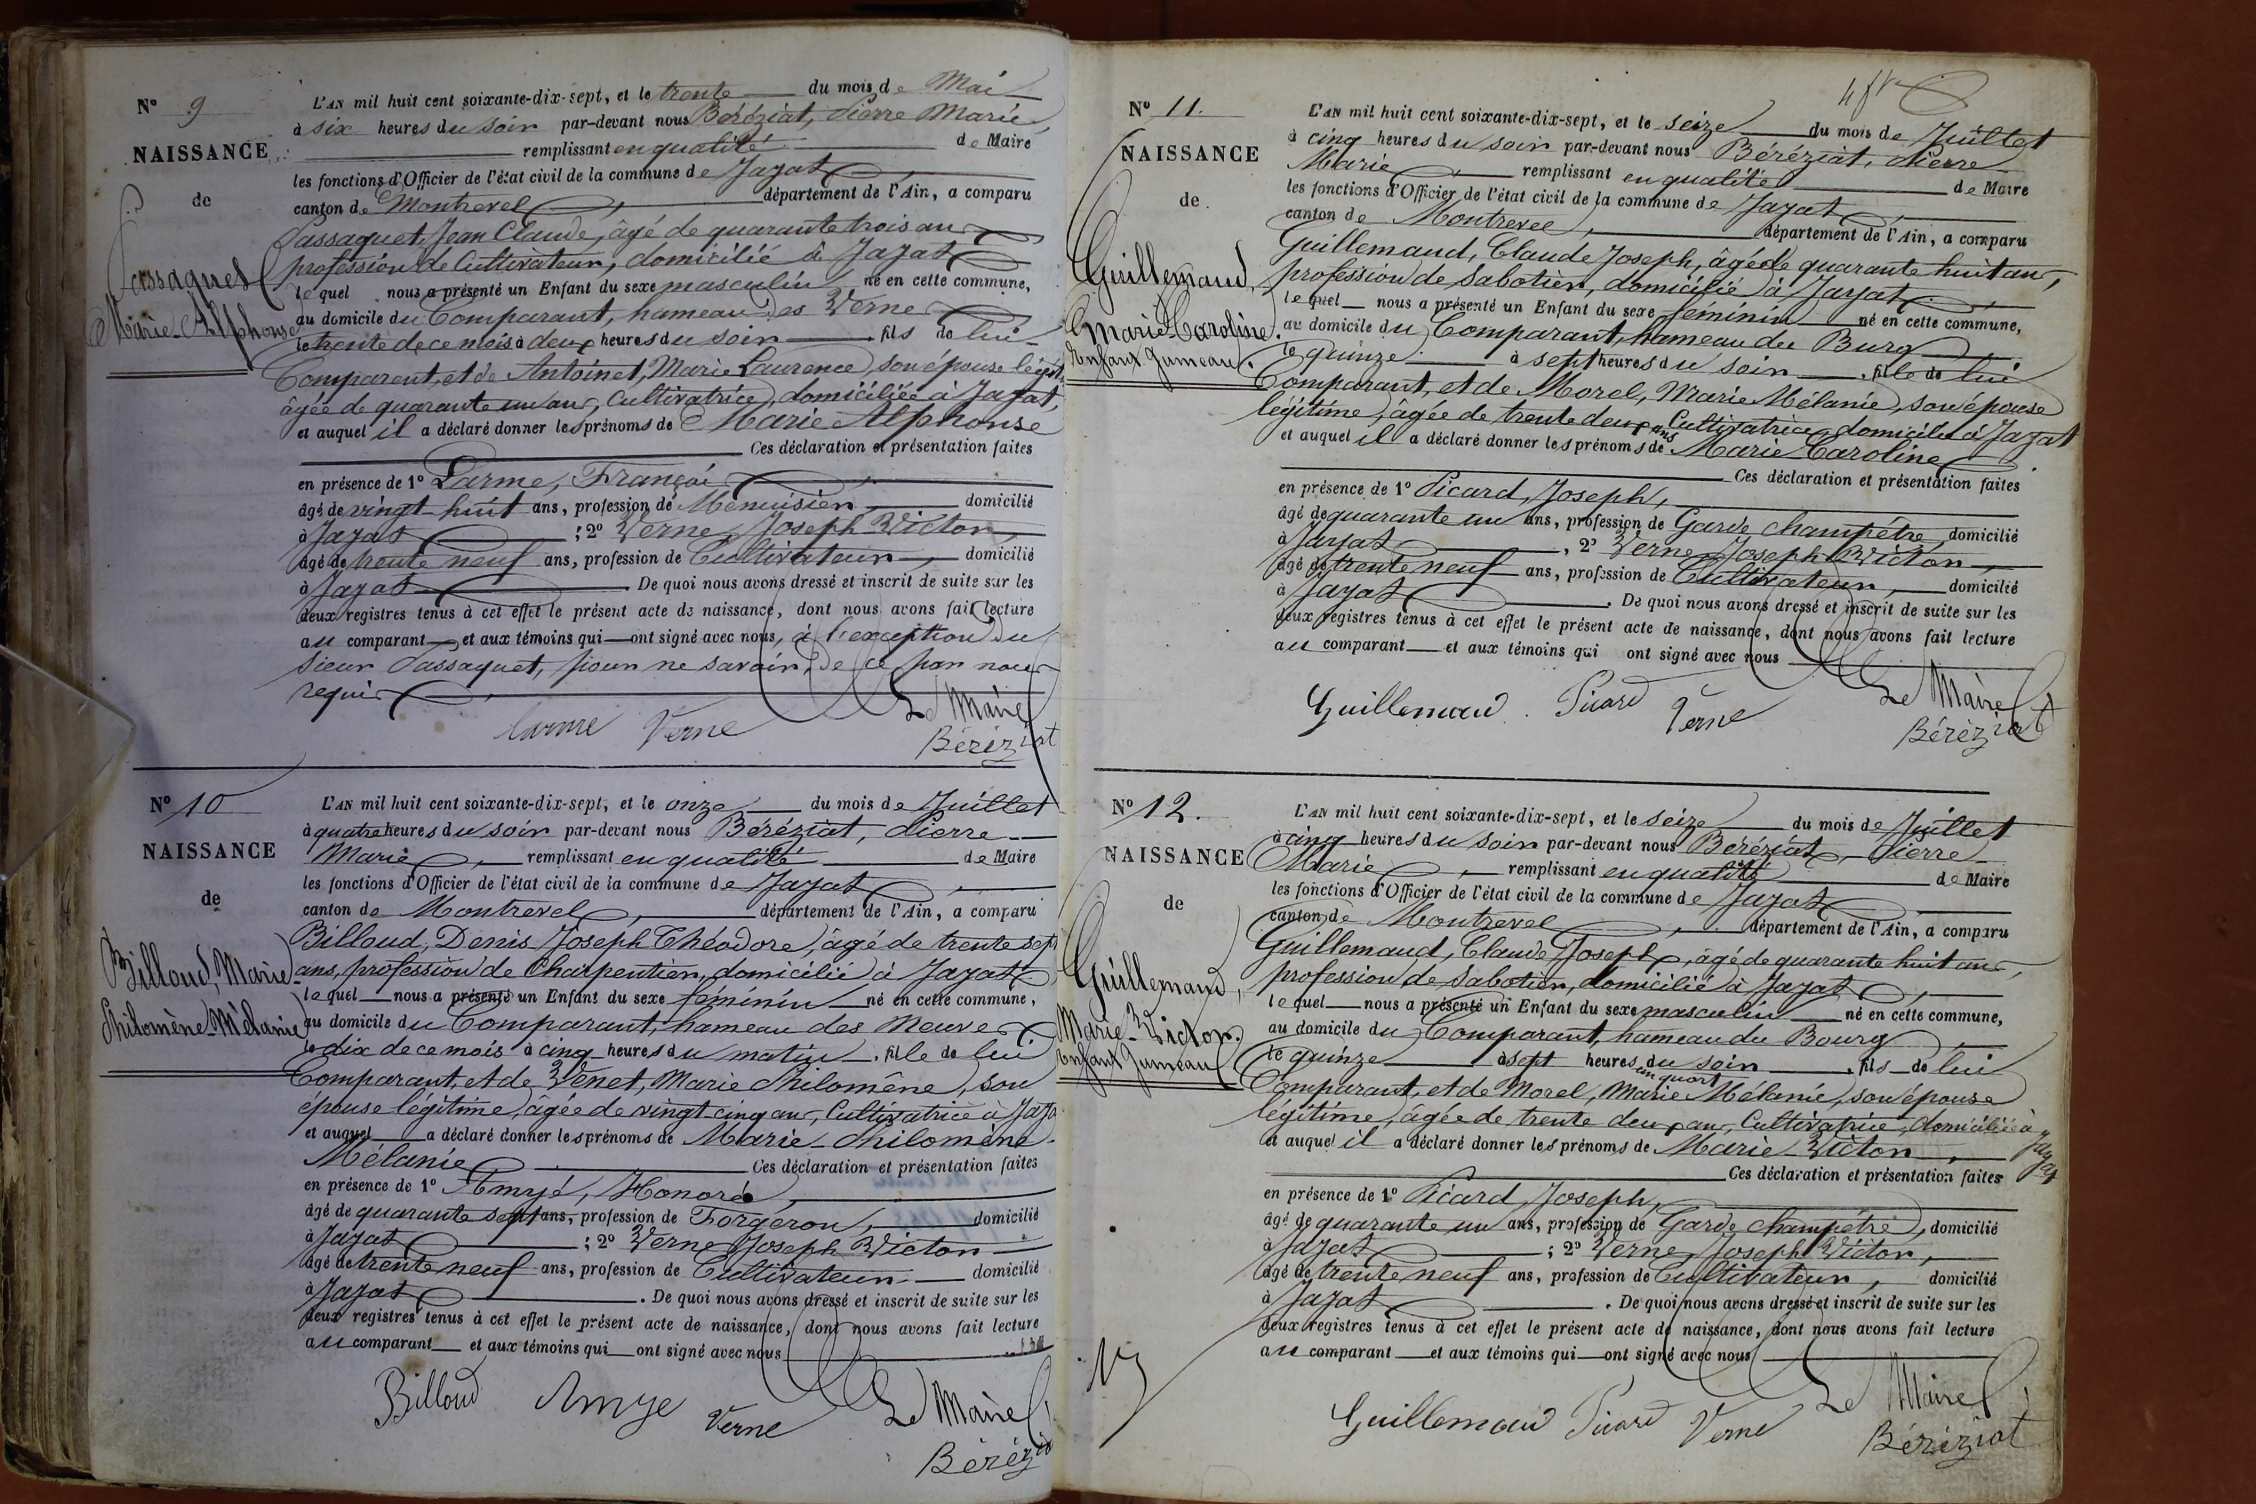 N° 9
NAISSANCE
de
Passaquet
Marie Alphonse
L'AN mil huit cent soixante-dix-sept, et le trente du mois de Mai
à six heures du soir par-devant nous Béréziat, Pierre Marie,
remplissant en qualité de Maire
les fonctions d'Officier de l'état civil de la commune de Jayat
canton de Montrevel, département de l'Ain, a comparu
Passaquet, Jean Claude, âgé de quarante trois ans
profession de Cultivateur, domicilié à Jayat
lequel nous a présenté un Enfant du sexe masculin né en cette commune,
au domicile du Comparant, hameau des Verne
le trente de ce mois à deux heures du soir, fils de lui
Comparent, et de Antoinet, Marie Laurence, son épouse légit
âgée de quarante un ans, Cultivatrice, domiciliée à Jayat,
et auquel il a déclaré donner les prénoms de Marie Alphonse
Ces déclaration et présentation faites
en présence de 1° Larme, Françoi
âgé de vingt-huit ans, profession de Menuisier, domicilié
à Jayat ; 2° Verne, Joseph Victor,
âgé de trente neuf ans, profession de Cultivateur, domicilié
à Jayat. De quoi nous avons dressé et inscrit de suite sur les
deux registres tenus à cet effet le présent acte de naissance, dont nous avons fait lecture
au comparant, et aux témoins qui ont signé avec nous, à l'exception du
sieur Passaquet, pour ne savoir, de ce par nous
requis
Larme Verne Le Maire
Béréziat
N° 10
NAISSANCE
de
Billoud, Marie-
Philomène Mélanie
L'AN mil huit cent soixante-dix-sept, et le onze du mois de Juillet
à quatre heures du soir par-devant nous Béréziat, Pierre
Marie, remplissant en qualité de Maire
les fonctions d'Officier de l'état civil de la commune de Jayat,
canton de Montrevel, département de l'Ain, a comparu
Billoud, Denis Joseph Théodore, âgé de trente sept
ans, profession de Charpentier, domicilié à Jayat
lequel nous a présenté un Enfant du sexe féminin né en cette commune,
au domicile du Comparant, hameau des Neuve
le dix de ce mois à cinq heures du matin, fille de lui
Comparant, et de Venet, Marie Philomène, son
épouse légitime, âgée de vingt cinq ans, Cultivatrice à Jaya
et auquel a déclaré donner les prénoms de Marie Philomène
Mélanie Ces déclaration et présentation faites
en présence de 1° Amyé, Honoré,
âgé de quarante sept ans, profession de Forgeron, domicilié
à Jayat ; 2° Verne Joseph Victor
âgé de trente neuf ans, profession de Cultivateur, domicilié
à Jayat. De quoi nous avons dressé et inscrit de suite sur les
deux registres tenus à cet effet le présent acte de naissance, dont nous avons fait lecture
au comparant et aux témoins qui ont signé avec nous
Billoud Amye Verne Le Maire
Béréziat
N° 11.
NAISSANCE
de
Guillemaud,
Marie-Caroline.
Enfant Jumeau.
L'AN mil huit cent soixante-dix-sept, et le seize du mois de Juillet
à cinq heures du soir par-devant nous Béréziat, Pierre
Marie, remplissant en qualité de Maire
les fonctions d'Officier de l'état civil de la commune de Jayat,
canton de Montrevel, département de l'Ain, a comparu
Guillemaud, Claude Joseph, âgé de quarante huit ans,
profession de Sabotier, domicilié à Jayat
lequel nous a présenté un Enfant du sexe féminin né en cette commune,
au domicile du Comparant, hameau du Burg
le quinze à sept heures du soir, fille de lui
Comparant, et de Morel, Marie Mélanie, son épouse
légitime, âgée de trente deux ans Cultivatrice domiciliée à Jayat
et auquel il a déclaré donner les prénoms de Marie Caroline
Ces déclaration et présentation faites
en présence de 1° Picard, Joseph,
âgé de quarante un ans, profession de Garde champêtre, domicilié
à Jayat, 2° Verne, Joseph Victor,
âgé de trente neuf ans, profession de Cultivateur, domicilié
à Jayat. De quoi nous avons dressé et inscrit de suite sur les
deux registres tenus à cet effet le présent acte de naissance, dont nous avons fait lecture
au comparant et aux témoins qui ont signé avec nous
Guillemaud Picard Verne Le Maire
Béréziat
N° 12.
NAISSANCE
de
Guillemaud,
Marie-Victor.
Enfant Jumeau
L'AN mil huit cent soixante-dix-sept, et le seize du mois de Juillet
à cinq heures du soir par-devant nous Béréziat, Pierre
Marie, remplissant en qualité de Maire
les fonctions d'Officier de l'état civil de la commune de Jayat
canton de Montrevel, département de l'Ain, a comparu
Guillemaud, Claude Joseph, âgé de quarante huit ans,
profession de Sabotier, domicilié à Jayat,
lequel nous a présenté un Enfant du sexe masculin né en cette commune,
au domicile du Comparant, hameau du Bourg,
le quinze à sept heures un quart du soir, fils de lui
Comparant, et de Morel, Marie Mélanie, son épouse
légitime, âgée de trente deux ans, Cultivatrice, domiciliée à Jayat
et auquel il a déclaré donner les prénoms de Marie Victor,
Ces déclaration et présentation faites
en présence de 1° Picard, Joseph,
âgé de quarante un ans, profession de Garde champêtre, domicilié
à Jayat ; 2° Verne, Joseph Victor,
âgé de trente neuf ans, profession de Cultivateur, domicilié
à Jayat. De quoi nous avons dressé et inscrit de suite sur les
deux registres tenus à cet effet le présent acte de naissance, dont nous avons fait lecture
au comparant et aux témoins qui ont signé avec nous
Guillemaud Picard Verne Le Maire
Béréziat